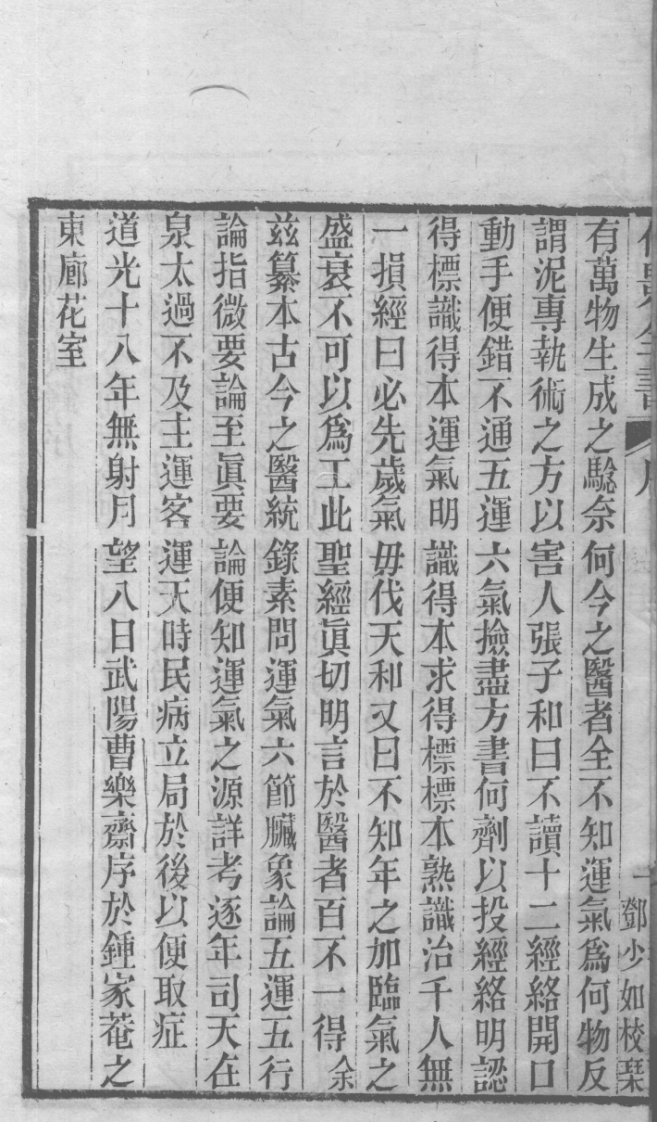 有萬物生成之驗奈何今之醫者全不知運氣爲何物反
謂泥專執術之方以害人張子和曰不讀十二經絡開口
動手便錯不通五運六氣撿盡方書何劑以投經絡明認
得標識得本運氣明識得本求得標標本熟識治千人無
一損經曰必先歲氣毋伐天和又曰不知年之加臨氣之
盛衰不可以爲工此聖經眞切明言於醫者百不一得余
茲纂本古今之醫統錄素問運氣六節臟象論五運五行
論指微要論至眞要論便知運氣之源詳考逐年司天在
泉太過不及主運客運天時民病立局於後以便取症
道光十八年無射月望八日武陽曹樂齋序於鍾家菴之
東廊花室
序
一
鄧少如校琹